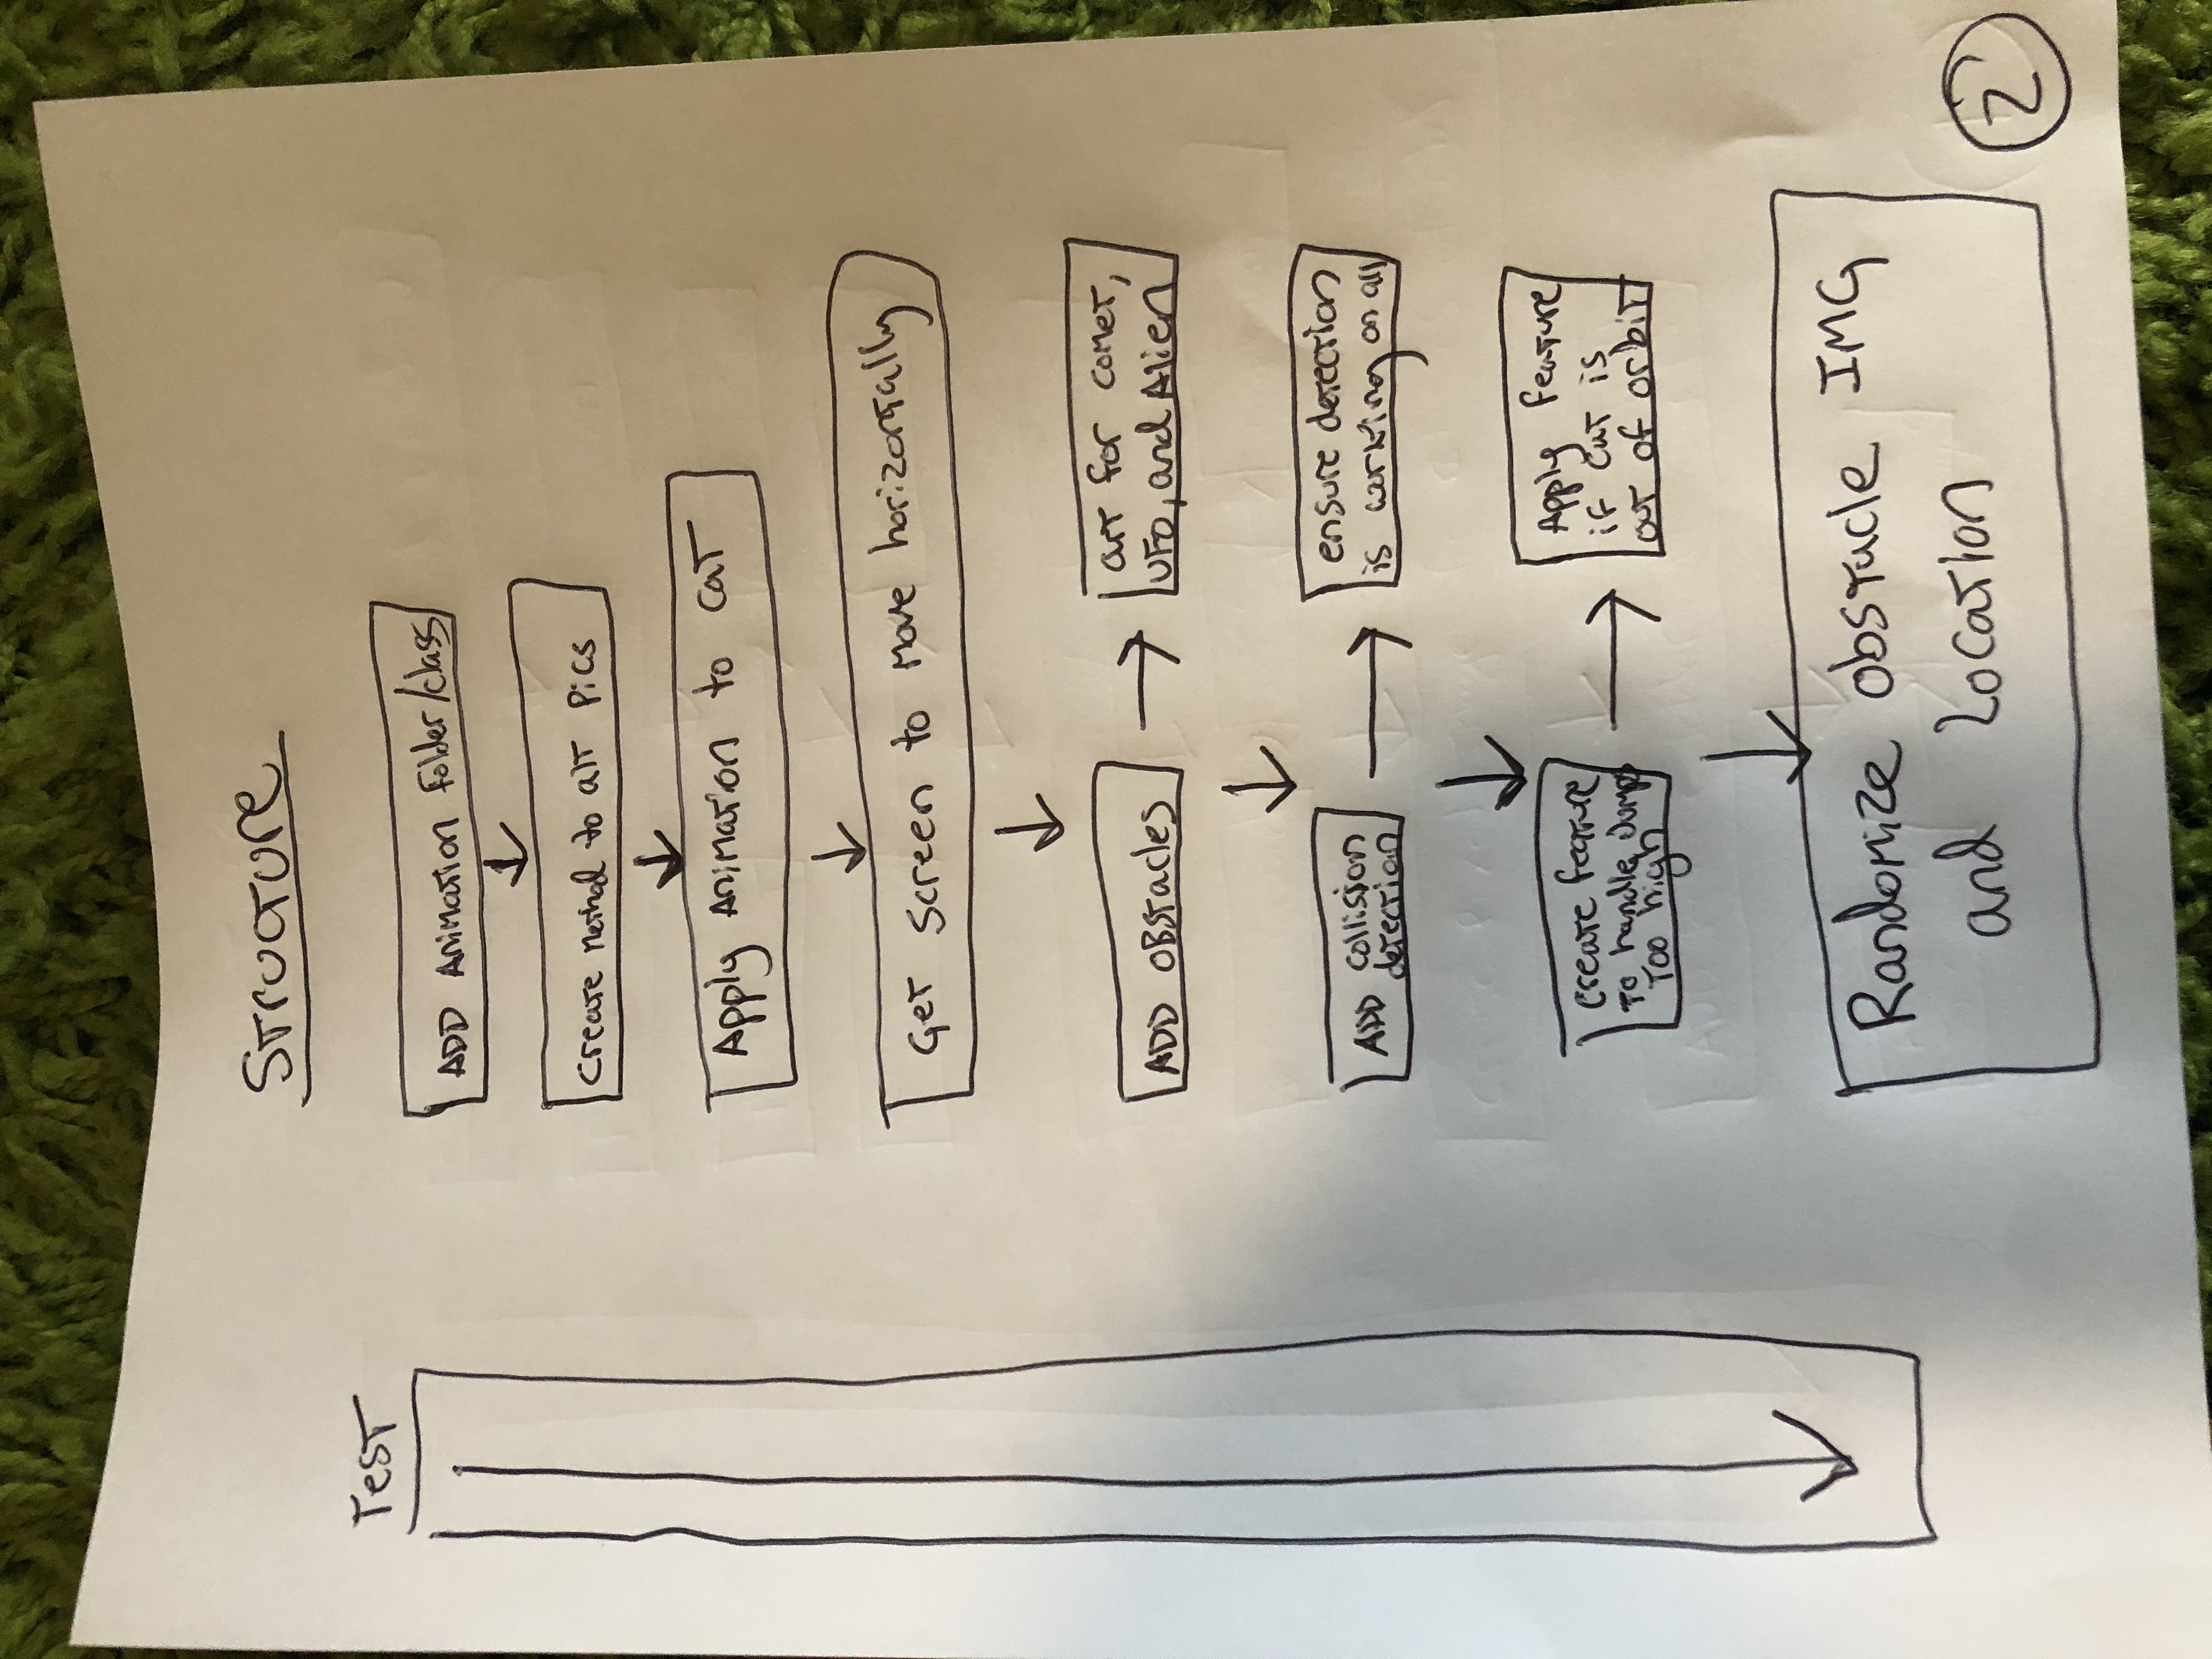 Structure
Test
ADD Animation Folder/class
Create Method to alt Pics
Apply Animation to Cat
Get Screen to Move horizontally
ADD OBstacles
art for Comet,
UFO, and Alien
ADD collision
detection
ensure detection
is working on all
Create feature
To handle Jumps
Too high
Apply feature
if Cat is
out of orbit
Randomize obstacle IMG
and Location
2